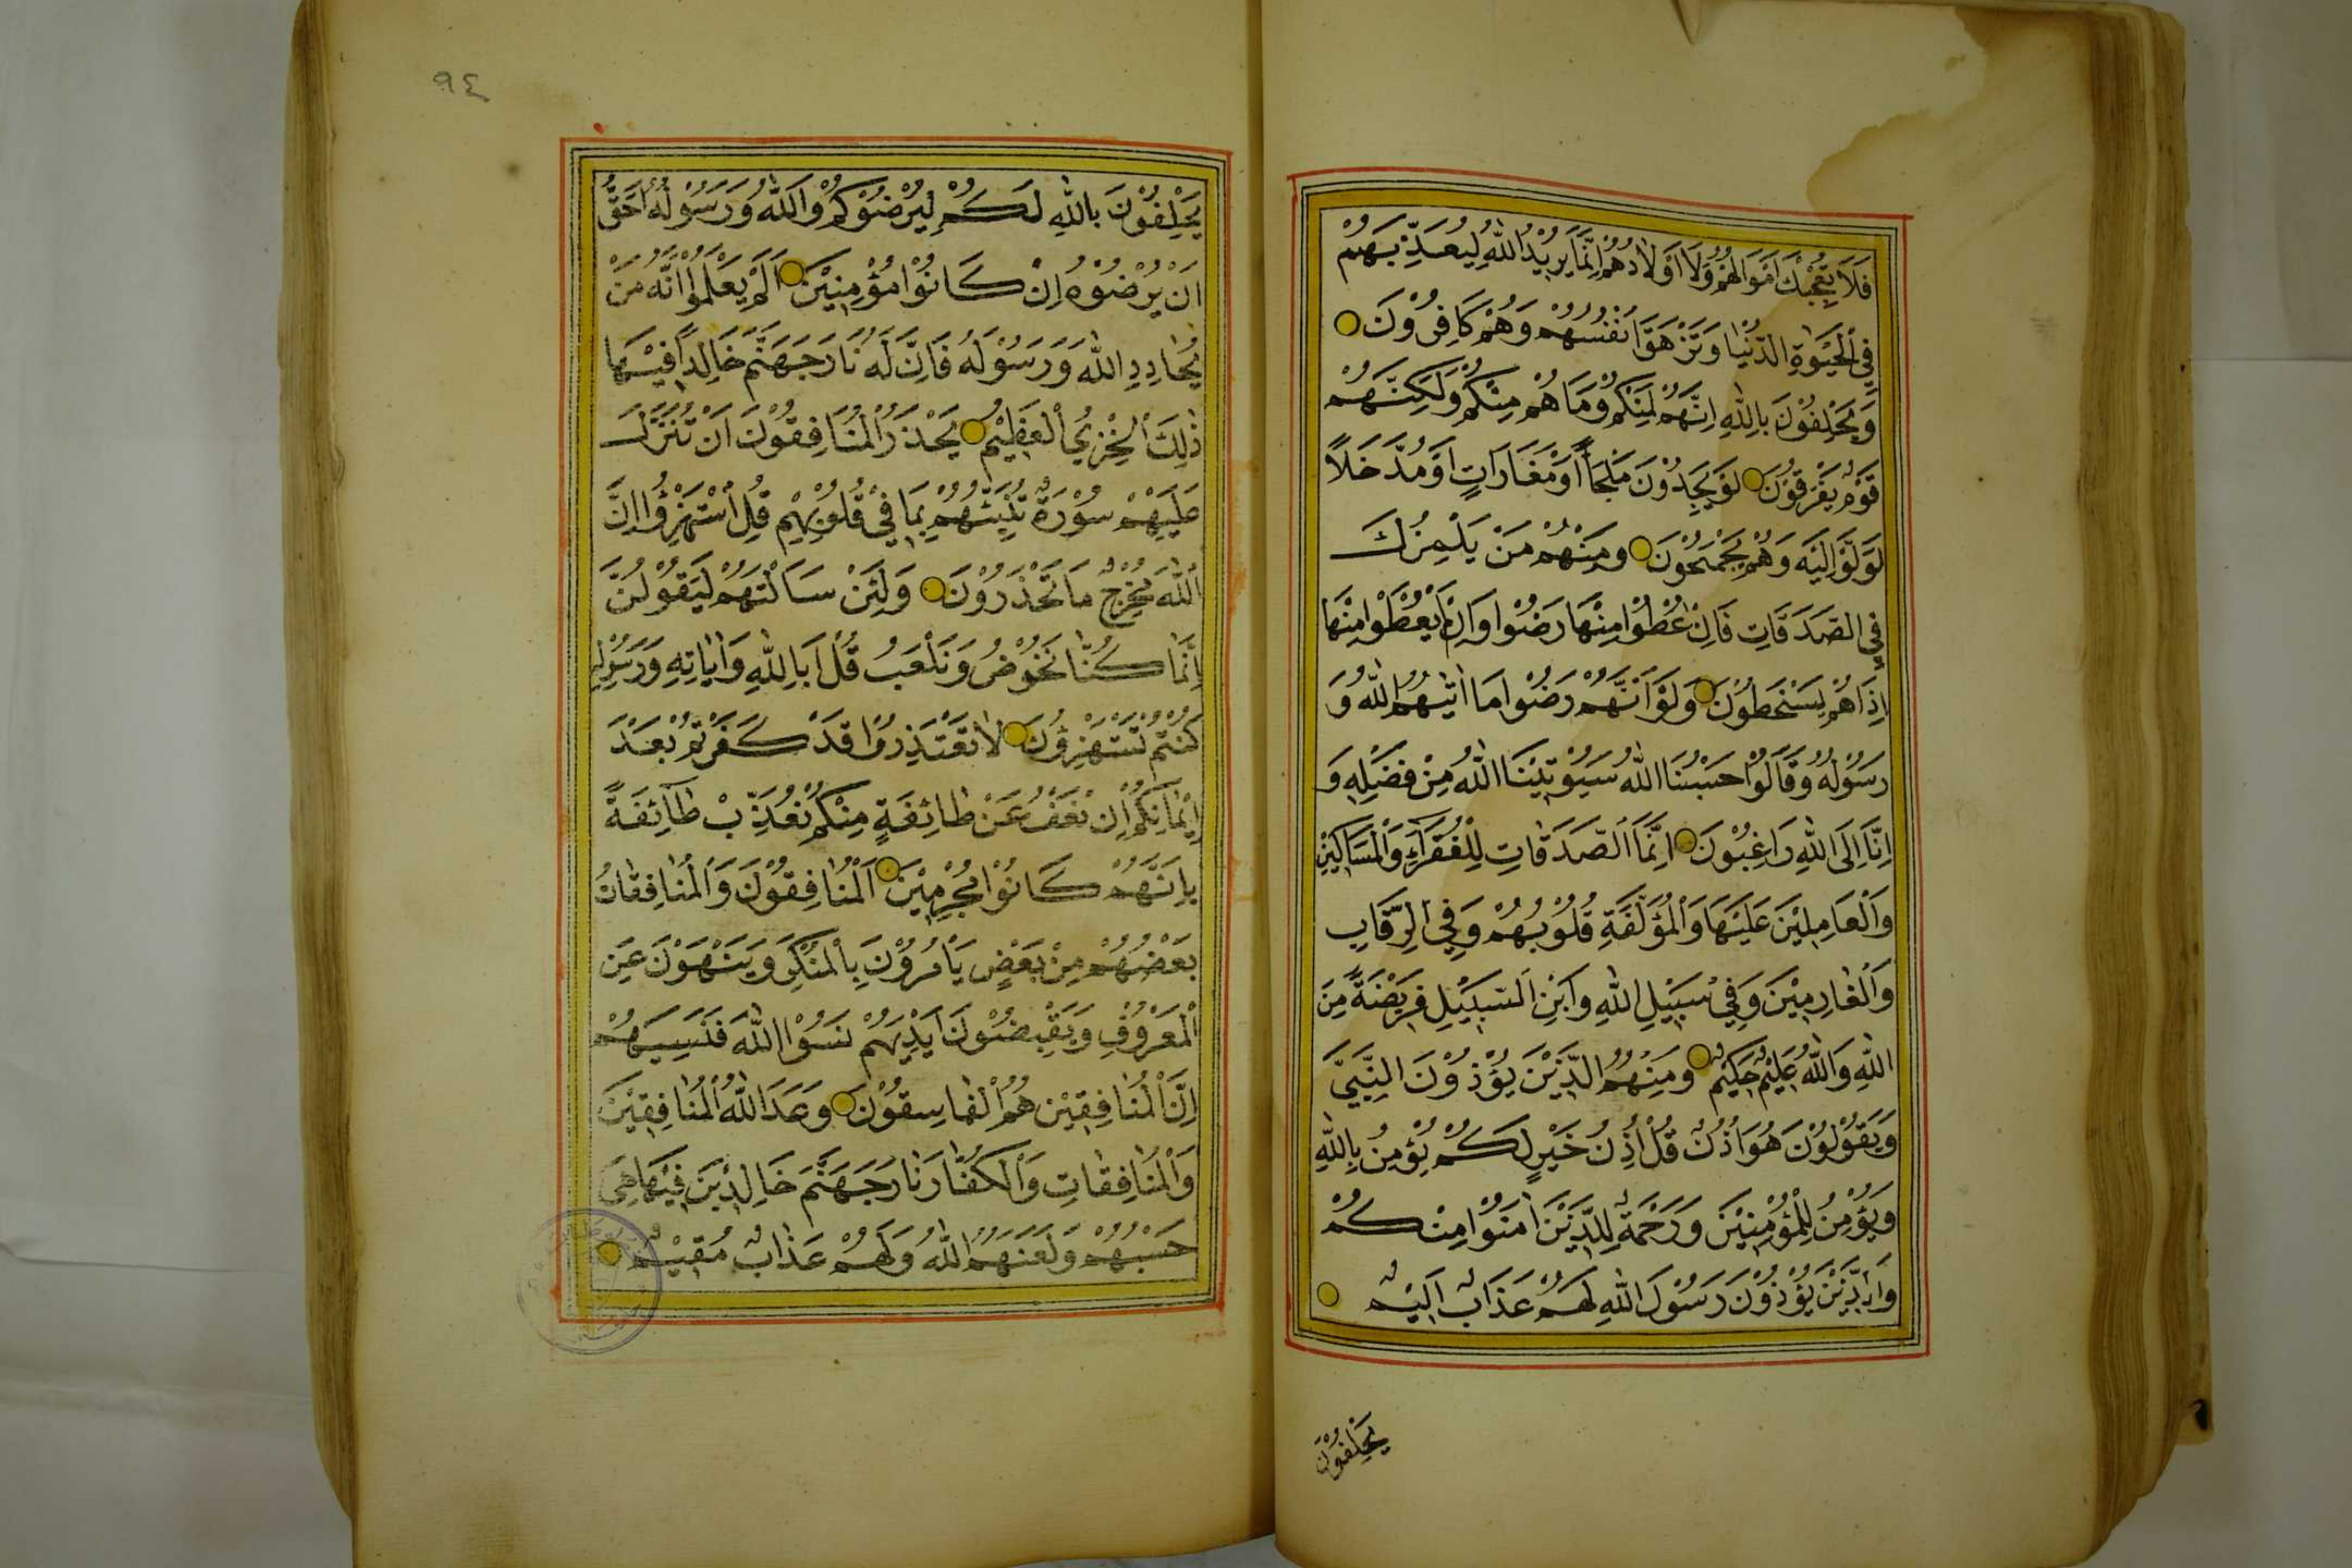 فَلَا تُعْجِبْكَ اَمْوَالُهُمْ وَلَا اَوْلَادُهُمْ اِنَّمَا يُرِيْدُ اللّٰهُ لِيُعَذِّبَهُمْ
فِي الْحَيٰوةِ الدُّنْيَا وَتَزْهَقَ اَنْفُسُهُمْ وَهُمْ كَافِرُوْنَ
وَيَحْلِفُوْنَ بِاللّٰهِ اِنَّهُمْ لَمِنْكُمْ وَمَا هُمْ مِنْكُمْ وَلٰكِنَّهُمْ
قَوْمٌ يَفْرَقُوْنَ لَوْ يَجِدُوْنَ مَلْجَأً اَوْ مَغَارَاتٍ اَوْ مُدَّخَلًا
لَوَلَّوْا اِلَيْهِ وَهُمْ يَجْمَحُوْنَ وَمِنْهُمْ مَنْ يَلْمِزُكَ
فِي الصَّدَقَاتِ فَاِنْ اُعْطُوْا مِنْهَا رَضُوْا وَاِنْ لَمْ يُعْطَوْا مِنْهَا
اِذَا هُمْ يَسْخَطُوْنَ وَلَوْ اَنَّهُمْ رَضُوْا مَا اٰتٰيهُمُ اللّٰهُ وَ
رَسُوْلُهُ وَقَالُوْا حَسْبُنَا اللّٰهُ سَيُؤْتِيْنَا اللّٰهُ مِنْ فَضْلِهِ وَ
اِنَّا اِلَى اللّٰهِ رَاغِبُوْنَ اِنَّمَا الصَّدَقَاتِ لِلْفُقَرَاءِ وَالْمَسَاكِيْنِ
وَالْعَامِلِيْنَ عَلَيْهَا وَالْمُؤَلَّفَةِ قُلُوْبُهُمْ وَفِي الرِّقَابِ
وَالْغَارِمِيْنَ وَفِيْ سَبِيْلِ اللّٰهِ وَابْنِ السَّبِيْلِ فَرِيْضَةً مِنَ
اللّٰهِ وَاللّٰهُ عَلِيْمٌ حَكِيْمٌ وَمِنْهُمُ الَّذِيْنَ يُؤْذُوْنَ النَّبِيَّ
وَيَقُوْلُوْنَ هُوَ اُذُنٌ قُلْ اُذُنُ خَيْرٍ لَكُمْ يُؤْمِنُ بِاللّٰهِ
وَيُؤْمِنُ لِلْمُؤْمِنِيْنَ وَرَحْمَةٌ لِلَّذِيْنَ اٰمَنُوْا مِنْكُمْ
وَالَّذِيْنَ يُؤْذُوْنَ رَسُوْلَ اللّٰهِ لَهُمْ عَذَابٌ اَلِيْمٌ
يَحْلِفُوْنَ
٩٤
يَحْلِفُوْنَ بِاللّٰهِ لَكُمْ لِيُرْضُوْكُمْ وَاللّٰهُ وَرَسُوْلُهُ اَحَقُّ
اَنْ يُرْضُوْهُ اِنْ كَانُوْا مُؤْمِنِيْنَ اَلَمْ يَعْلَمُوْا اَنَّهُ مَنْ
يُحَادِدِ اللّٰهَ وَرَسُوْلَهُ فَاِنَّ لَهُ نَارَ جَهَنَّمَ خَالِدًا فِيْهَا
ذٰلِكَ الْخِزْيُ الْعَظِيْمُ يَحْذَرُ الْمُنَافِقُوْنَ اَنْ تُنَزَّلَ
عَلَيْهِمْ سُوْرَةٌ تُنَبِّئُهُمْ بِمَا فِيْ قُلُوْبِهِمْ قُلِ اسْتَهْزِؤُا اِنَّ
اللّٰهَ مُخْرِجٌ مَا تَحْذَرُوْنَ وَلَئِنْ سَاَلْتَهُمْ لَيَقُوْلُنَّ
اِنَّمَا كُنَّا نَخُوْضُ وَنَلْعَبُ قُلْ اَبِاللّٰهِ وَاٰيَاتِهِ وَرَسُوْلِهِ
كُنْتُمْ تَسْتَهْزِؤُنَ لَا تَعْتَذِرُوْا قَدْ كَفَرْتُمْ بَعْدَ
اِيْمَانِكُمْ اِنْ نَعْفُ عَنْ طَائِفَةٍ مِنْكُمْ نُعَذِّبْ طَائِفَةً
بِاَنَّهُمْ كَانُوْا مُجْرِمِيْنَ اَلْمُنَافِقُوْنَ وَالْمُنَافِقَاتُ
بَعْضُهُمْ مِنْ بَعْضٍ يَاْمُرُوْنَ بِالْمُنْكَرِ وَيَنْهَوْنَ عَنِ
الْمَعْرُوْفِ وَيَقْبِضُوْنَ اَيْدِيَهُمْ نَسُوْا اللّٰهَ فَنَسِيَهُمْ
اِنَّ الْمُنَافِقِيْنَ هُمُ الْفَاسِقُوْنَ وَعَدَ اللّٰهُ الْمُنَافِقِيْنَ
وَالْمُنَافِقَاتِ وَالْكُفَّارَ نَارَ جَهَنَّمَ خَالِدِيْنَ فِيْهَا هِيَ
حَسْبُهُمْ وَلَعَنَهُمُ اللّٰهُ وَلَهُمْ عَذَابٌ مُقِيْمٌ